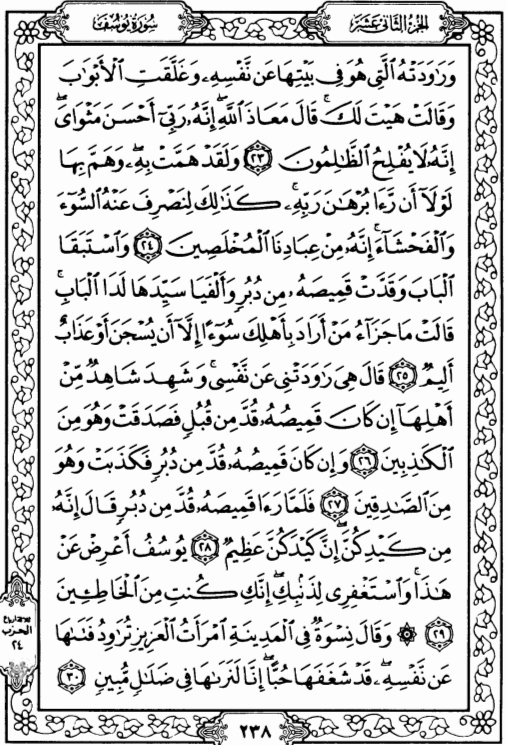 الجزء الثاني عشر
سورة يوسف
وَرَٰوَدَتْهُ ٱلَّتِى هُوَ فِى بَيْتِهَا عَن نَّفْسِهِۦ وَغَلَّقَتِ ٱلْأَبْوَٰبَ
وَقَالَتْ هَيْتَ لَكَ ۚ قَالَ مَعَاذَ ٱللَّهِ ۖ إِنَّهُۥ رَبِّىٓ أَحْسَنَ مَثْوَاىَ ۖ
إِنَّهُۥ لَا يُفْلِحُ ٱلظَّٰلِمُونَ ٢٣ وَلَقَدْ هَمَّتْ بِهِۦ ۖ وَهَمَّ بِهَا
لَوْلَآ أَن رَّءَا بُرْهَٰنَ رَبِّهِۦ ۚ كَذَٰلِكَ لِنَصْرِفَ عَنْهُ ٱلسُّوٓءَ
وَٱلْفَحْشَآءَ ۚ إِنَّهُۥ مِنْ عِبَادِنَا ٱلْمُخْلَصِينَ ٢٤ وَٱسْتَبَقَا
ٱلْبَابَ وَقَدَّتْ قَمِيصَهُۥ مِن دُبُرٍ وَأَلْفَيَا سَيِّدَهَا لَدَا ٱلْبَابِ ۚ
قَالَتْ مَا جَزَآءُ مَنْ أَرَادَ بِأَهْلِكَ سُوٓءًا إِلَّآ أَن يُسْجَنَ أَوْ عَذَابٌ
أَلِيمٌ ٢٥ قَالَ هِىَ رَٰوَدَتْنِى عَن نَّفْسِى ۚ وَشَهِدَ شَاهِدٌ مِّنْ
أَهْلِهَآ إِن كَانَ قَمِيصُهُۥ قُدَّ مِن قُبُلٍ فَصَدَقَتْ وَهُوَ مِنَ
ٱلْكَٰذِبِينَ ٢٦ وَإِن كَانَ قَمِيصُهُۥ قُدَّ مِن دُبُرٍ فَكَذَبَتْ وَهُوَ
مِنَ ٱلصَّٰدِقِينَ ٢٧ فَلَمَّا رَءَا قَمِيصَهُۥ قُدَّ مِن دُبُرٍ قَالَ إِنَّهُۥ
مِن كَيْدِكُنَّ ۖ إِنَّ كَيْدَكُنَّ عَظِيمٌ ٢٨ يُوسُفُ أَعْرِضْ عَنْ
هَٰذَا ۚ وَٱسْتَغْفِرِى لِذَنۢبِكِ ۖ إِنَّكِ كُنتِ مِنَ ٱلْخَاطِـِٔينَ
٢٩ ۞ وَقَالَ نِسْوَةٌ فِى ٱلْمَدِينَةِ ٱمْرَأَتُ ٱلْعَزِيزِ تُرَٰوِدُ فَتَىٰهَا
عَن نَّفْسِهِۦ ۖ قَدْ شَغَفَهَا حُبًّا ۖ إِنَّا لَنَرَىٰهَا فِى ضَلَٰلٍ مُّبِينٍ ٣٠
الحزب
٢٤
٢٣٨